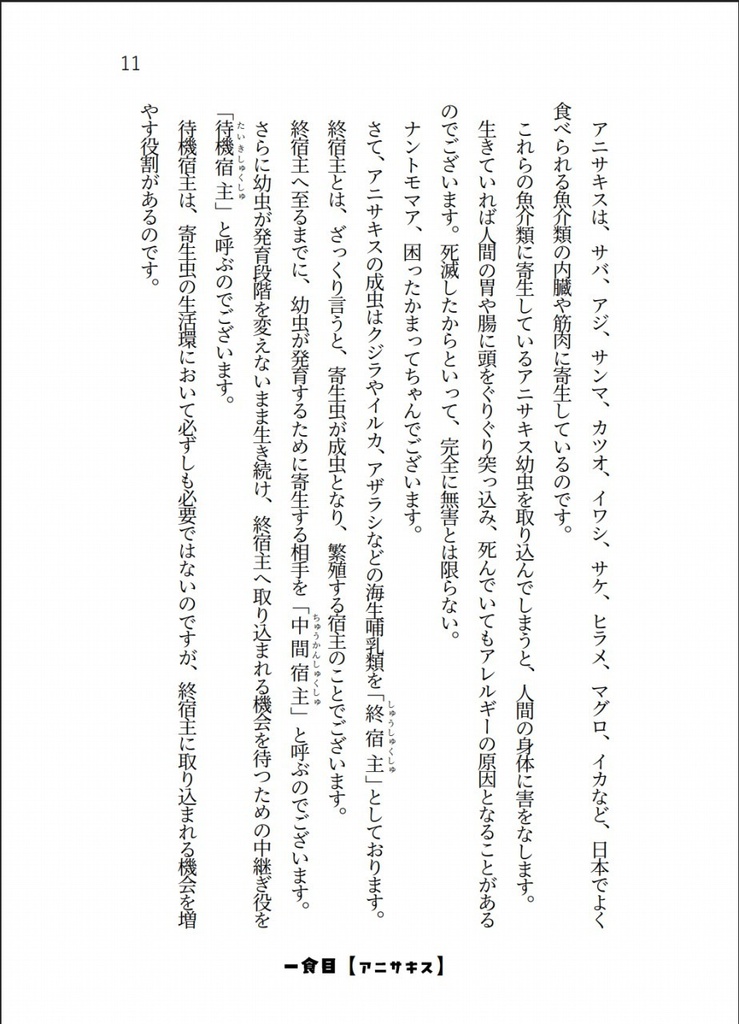 11
アニサキスは、サバ、アジ、サンマ、カツオ、イワシ、サケ、ヒラメ、マグロ、イカなど、日本でよく
食べられる魚介類の内臓や筋肉に寄生しているのです。
これらの魚介類に寄生しているアニサキス幼虫を取り込んでしまうと、人間の身体に害をなします。
生きていれば人間の胃や腸に頭をぐりぐり突っ込み、死んでいてもアレルギーの原因となることがある
のでございます。死滅したからといって、完全に無害とは限らない。
ナントモマア、困ったかまってちゃんでございます。
さて、アニサキスの成虫はクジラやイルカ、アザラシなどの海生哺乳類を「終宿主」としております。
しゅうしゅくしゅ
終宿主とは、ざっくり言うと、寄生虫が成虫となり、繁殖する宿主のことでございます。
終宿主へ至るまでに、幼虫が発育するために寄生する相手を「中間宿主」と呼ぶのでございます。
ちゅうかんしゅくしゅ
さらに幼虫が発育段階を変えないまま生き続け、終宿主へ取り込まれる機会を待つための中継ぎ役を
「待機宿主」と呼ぶのでございます。
たいきしゅくしゅ
待機宿主は、寄生虫の生活環において必ずしも必要ではないのですが、終宿主に取り込まれる機会を増
やす役割があるのです。
一食目【アニサキス】